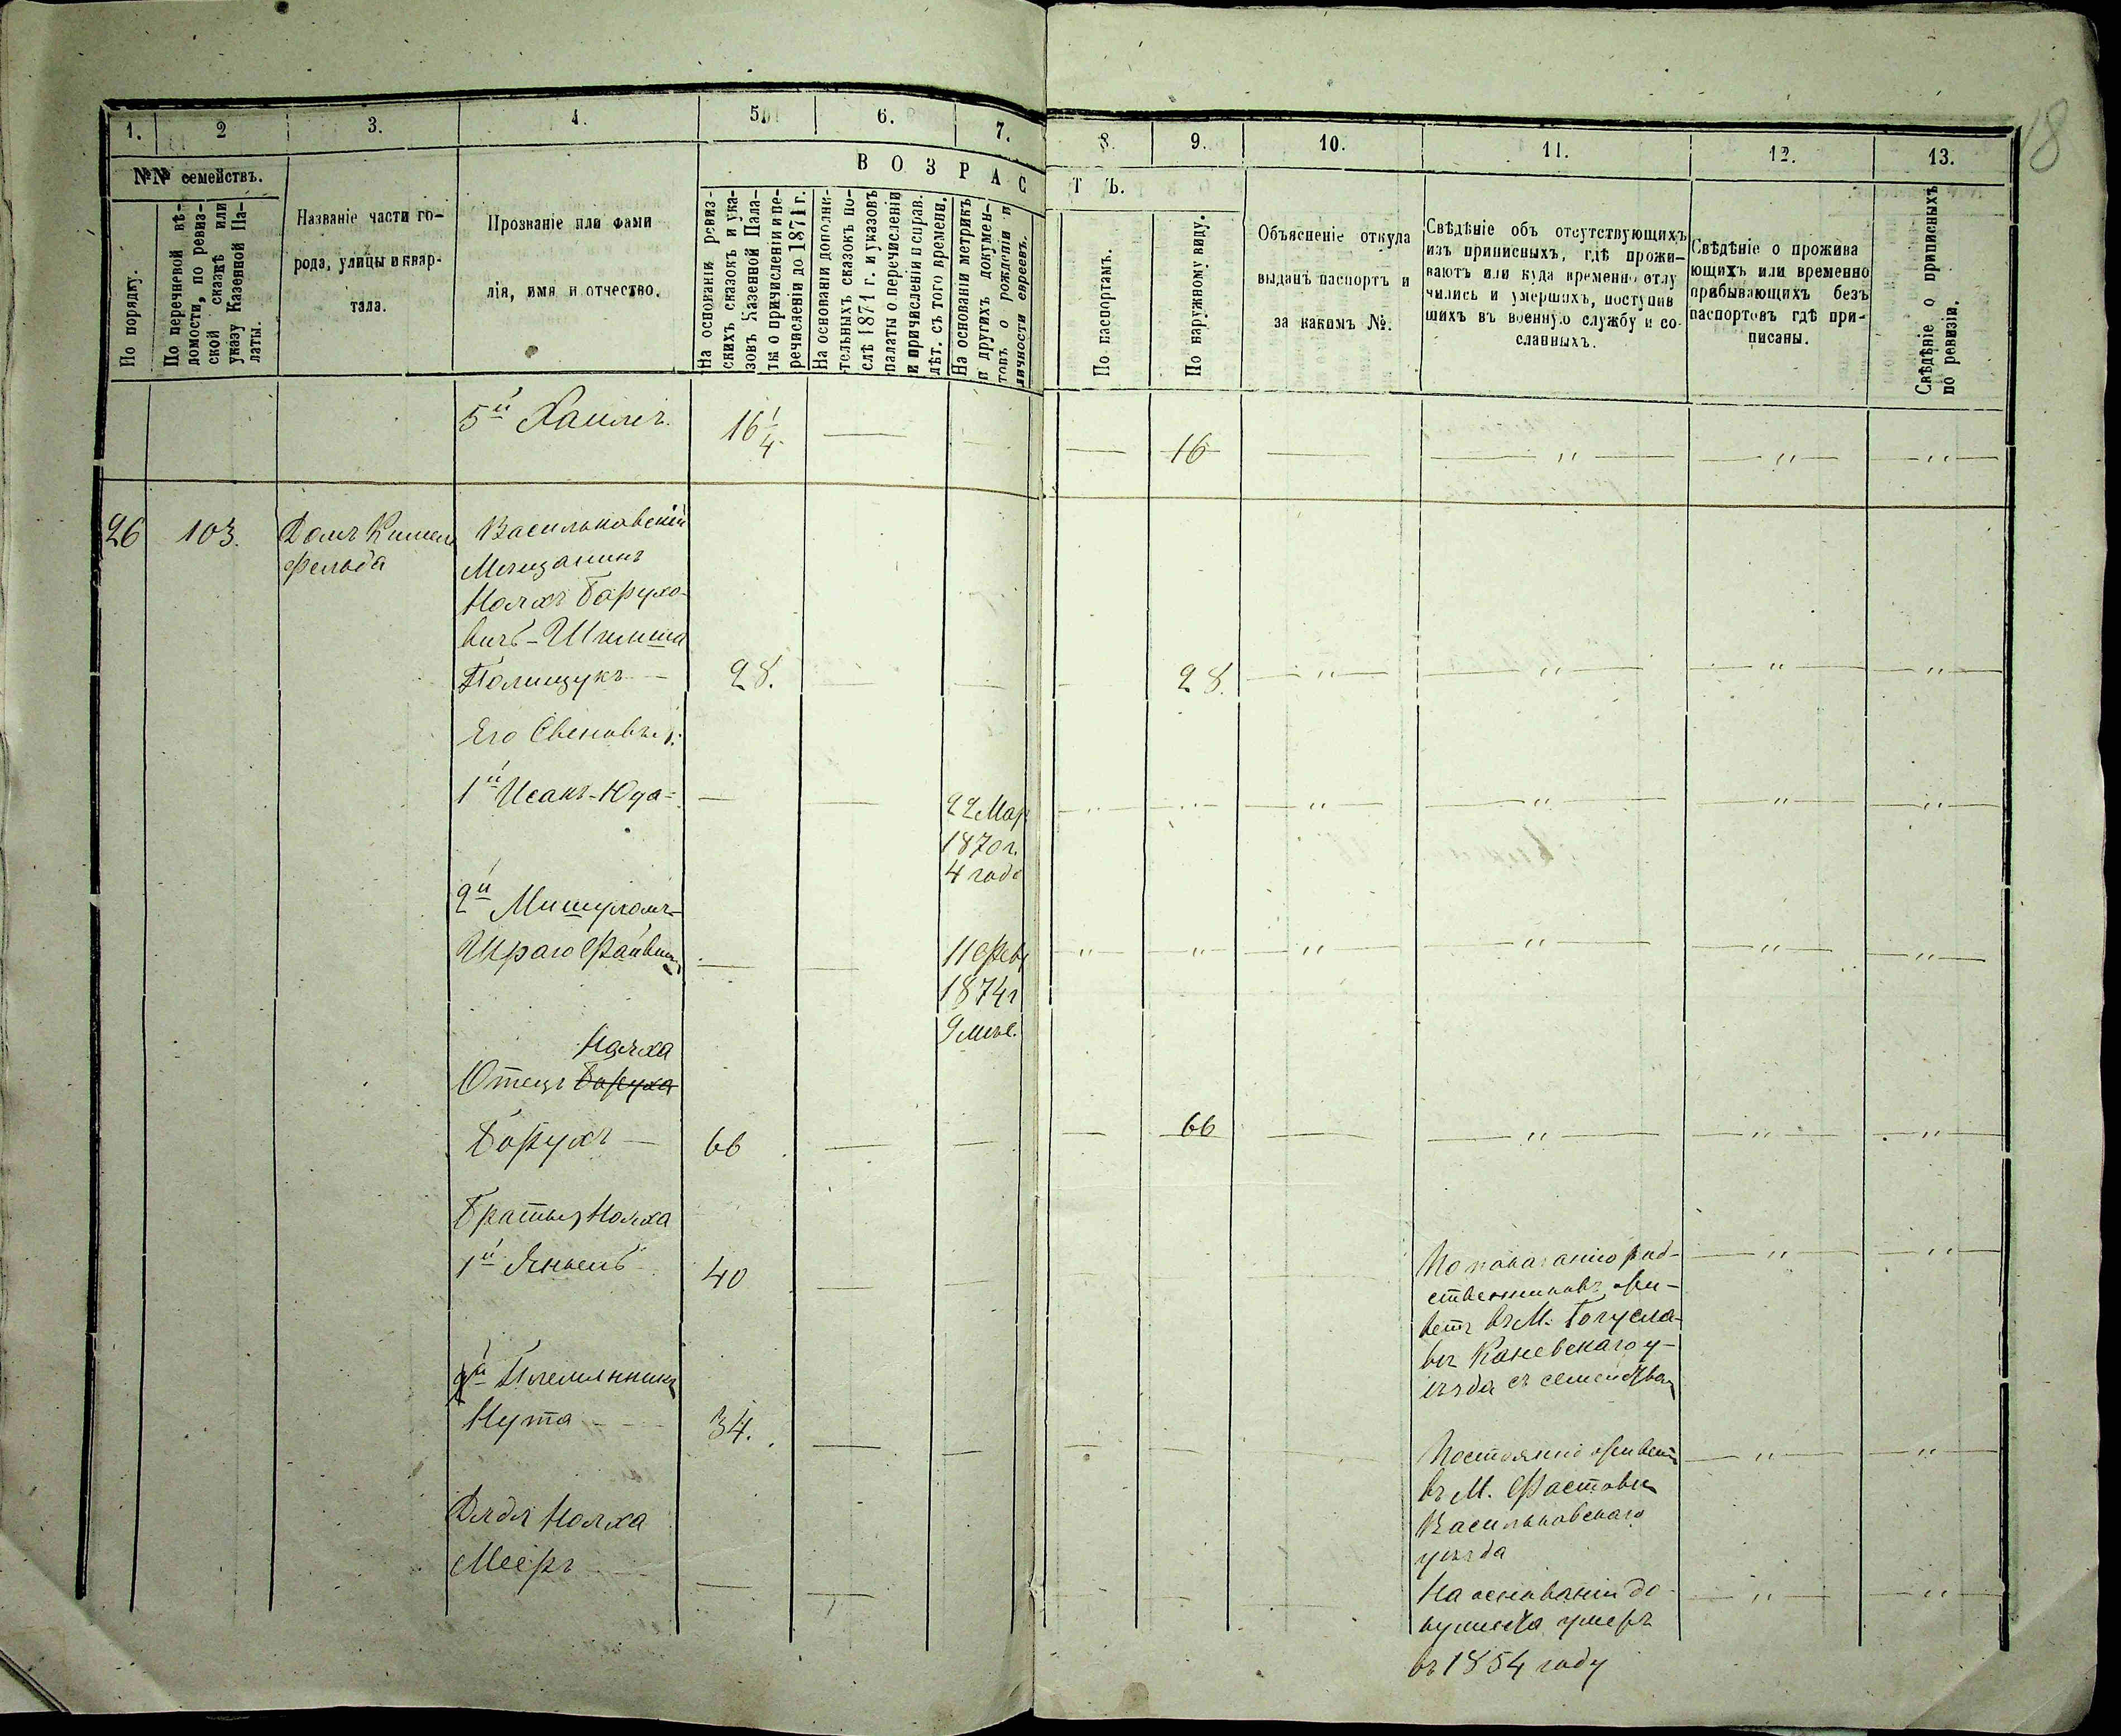 18
1. 2 3. 4. 5. 6. 7. 8. 9. 10. 11. 12. 13.
№№ семействъ.
По порядку.
По перечневой вѣ-
домости, по ревиз-
ской сказкѣ или
указу Казенной Па-
латы.
Названіе части го-
рода, улицы и квар-
тала.
Прозваніе или фами
лія, имя и отчество.
ВОЗРАС
ТЪ.
На основаніи ревиз-
скихъ сказокъ и ука-
зовъ Казенной Пала-
ты о причисленіи и пе-
речисленіи до 1871 г.
На основаніи дополни-
тельныхъ сказокъ по-
слѣ 1871 г. и указовъ
палаты о перечисленіи
и причисленіи и справ.
лѣт. съ того времени.
На основаніи метрикъ
и другихъ докумен-
товъ о рожденіи и
личности евреевъ.
По паспортамъ.
По наружному виду.
Объясненіе откула
выданъ паспортъ и
за какимъ №.
Свѣдѣніе объ отсутствующихъ
изъ приписныхъ, гдѣ прожи-
ваютъ или куда временно отлу
чились и умершихъ, поступив
шихъ въ военную службу и со-
сланныхъ.
Свѣдѣніе о прожива
ющихъ или временно
прибывающихъ безъ
паспортовъ гдѣ при-
писаны.
Свѣдѣніе о приписныхъ
по ревизіи.
5й Хаимъ. 16 1/4. — — — 16 — — " — — " — — " —
26 103. Домъ
фельда
Васильковскій
Мещанинъ
Нояхъ Барухо-
вичъ-
Полищукъ — 28. — — — 28. — " — — " — — " — — " —
Его Сыновья:
1й Исакъ-Юда- — — 22 Мар
1870 г.
4 года
2й Мишуломъ-
Шраго Файвишъ — — 11 Февр
1874 г
9 мѣс.
Нояха
Отецъ Баруха
Борухъ — 66 — — — 66 — — " — — " — — " —
Братья Нояха
1й Янкель 40 — — По показанію род-
ственниковъ жи-
ветъ въ М. Богусла-
вѣ Каневскаго у-
ѣзда съ семейством
2й Племянникъ
Нута 34. — — Постоянно живетъ
въ М. Фастовѣ
Васильковскаго
уѣзда
Дядя Нояха
Мееръ — — На основаніи до
кумента умеръ
въ 1854 году